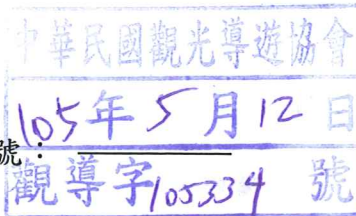 中華民國觀光導遊協會
105年5月12日
號：
觀導字105334號